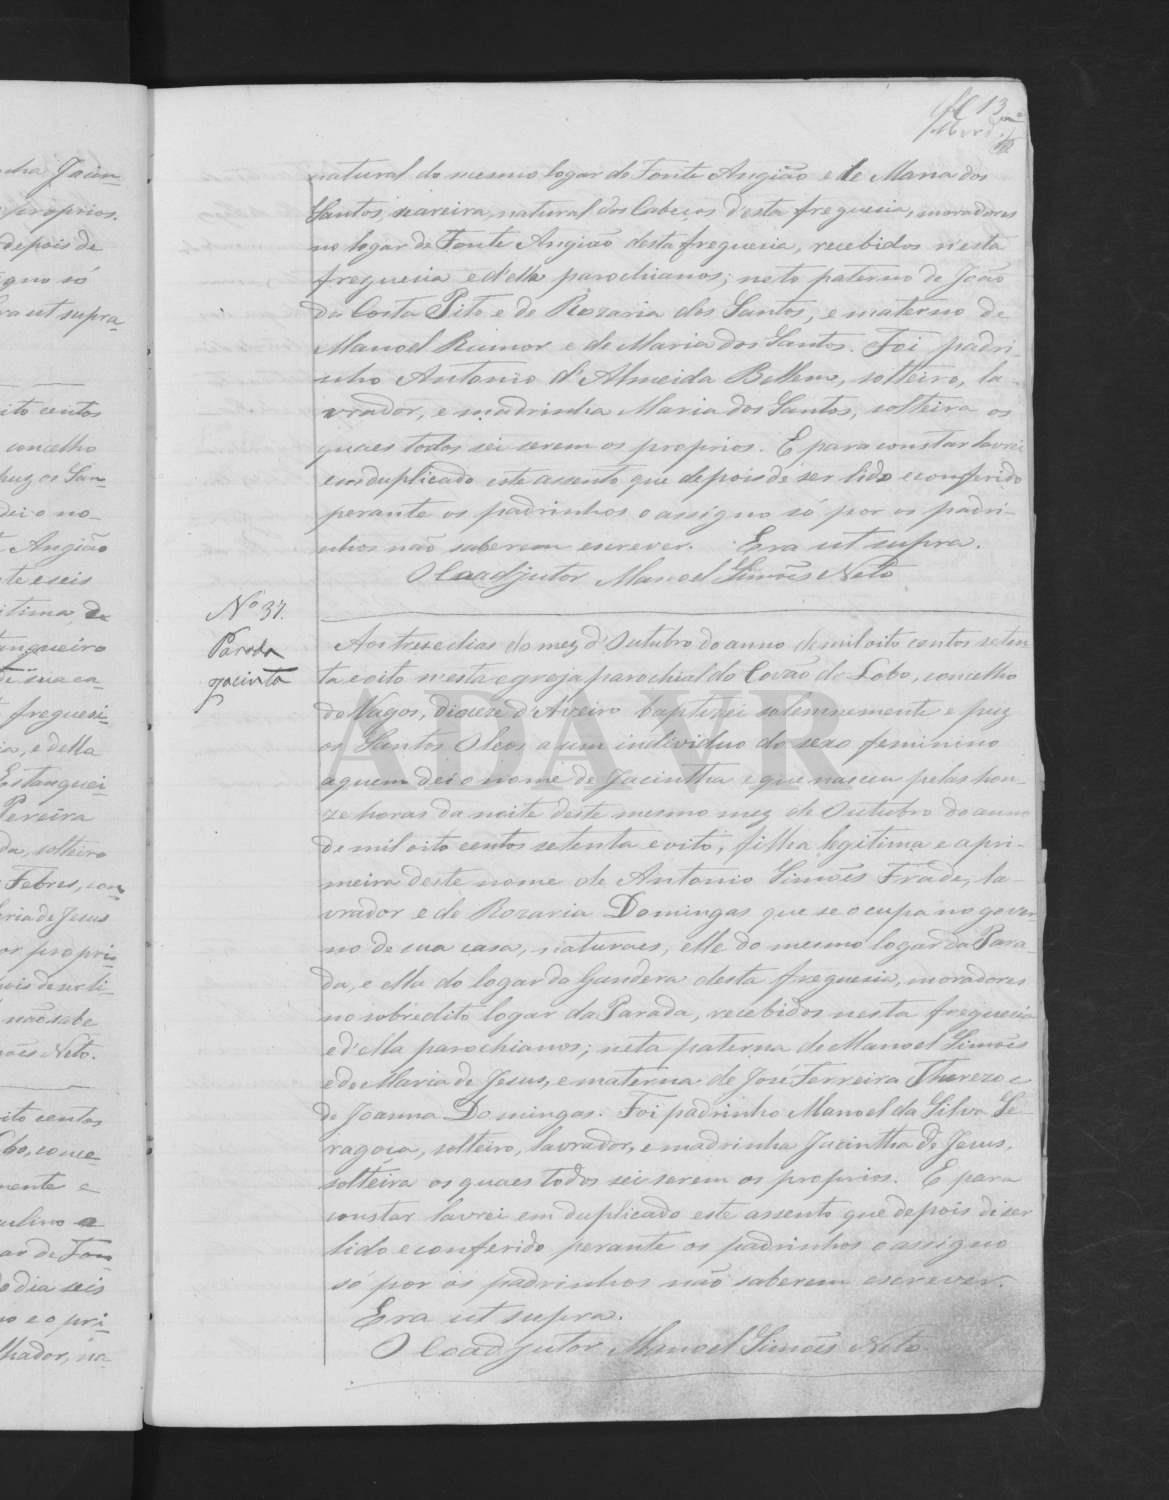 fl 13
natural do mesmo logar de Fonte Angião e de Maria dos
Santos, nareira, natural dos Cabeços d'esta freguesia, moradores
no logar de Fonte Angião desta freguesia, recebidos n'esta
freguesia e d'ella parochianos; neto paterno de João
da Costa Pito e de Rozaria dos Santos, e materno de
Manoel Rumor e de Maria dos Santos. Foi padri-
nho Antonio d'Almeida Bellem, solteiro, la-
vrador, e madrinha Maria dos Santos, solteira os
quaes todos sei serem os proprios. E para constar lavrei
em duplicado este assento que depois de ser lido e conferido
perante os padrinhos o assigno só por os padri-
nhos não saberem escrever. Era ut supra.
O Coadjutor Manoel Simões Neto
Nº 37.
Parada
Jacinta
Aos trese dias do mez d'Outubro do anno de mil oito centos seten-
ta e oito n'esta egreja parochial do Covão do Lobo, concelho
de Vagos, diocese d'Aveiro baptizei solemnemente e puz
os Santos Oleos a um individuo do sexo feminino
a quem dei o nome de Jacintha e que nasceu pelas hon-
ze horas da noite deste mesmo mez de Outubro do anno
de mil oito centos setenta e oito, filha legitima e a pri-
meira deste nome de Antonio Simões Frade, la-
vrador e de Rozaria Domingas que se occupa no gover-
no de sua casa, naturaes, elle do mesmo logar da Para-
da, e ella do logar da Gandera desta freguesia, moradores
no sobredito logar da Parada, recebidos nesta freguesia
e d'ella parochianos; neta paterna de Manoel Simões
e de Maria de Jesus, e materna de José Ferreira Therezo e
de Joanna Domingas. Foi padrinho Manoel da Silva Se-
ragoça, solteiro, lavrador, e madrinha Jacintha de Jesus,
solteira os quaes todos sei serem os proprios. E para
constar lavrei em duplicado este assento que depois de ser
lido e conferido perante os padrinhos o assigno
só por os padrinhos não saberem escrever.
Era ut supra.
O Coadjutor Manoel Simões Neto
ADAVR